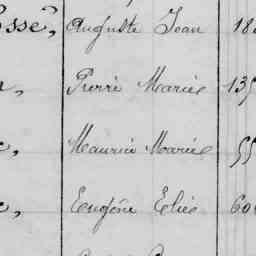 ossé, Auguste Jean 18
Pierre Marie 135
Maurice Marie 55
Eugène Elie 60